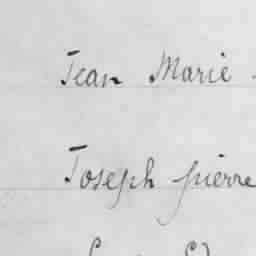 Jean Marie
Joseph pierre